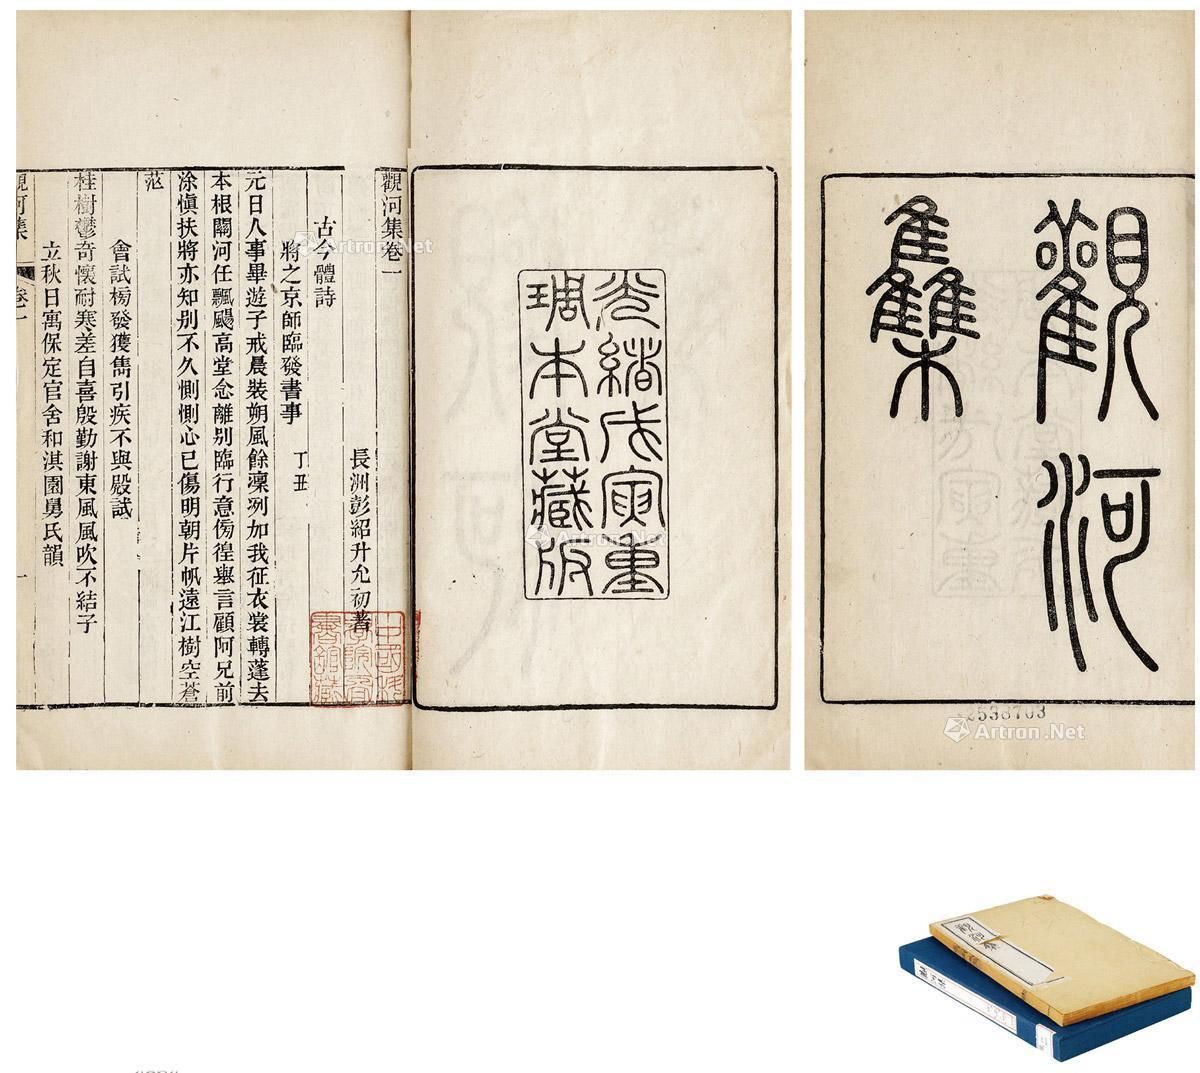 觀河
集
光緒戊寅重
琱本堂藏版
觀河集卷一
長洲彭紹升允初著
古今體詩
將之京師臨發書事 丁丑
元日人事畢遊子戒晨裝朔風餘凜冽加我征衣裳轉蓬去
本根關河任飄颺高堂念離别臨行意傍徨舉言顧阿兄前
涂愼扶將亦知别不久惻惻心已傷明朝片帆遠江樹空蒼
茫
會試榜發獲雋引疾不與殿試
桂樹鬱奇懷耐寒差自喜殷勤謝東風風吹不結子
立秋日寓保定官舍和淇園舅氏韻
觀河集 卷一
一
中國科
學院圖
書館藏
2538703
Artron.Net
Artron.Net
Artron.Net
觀河集